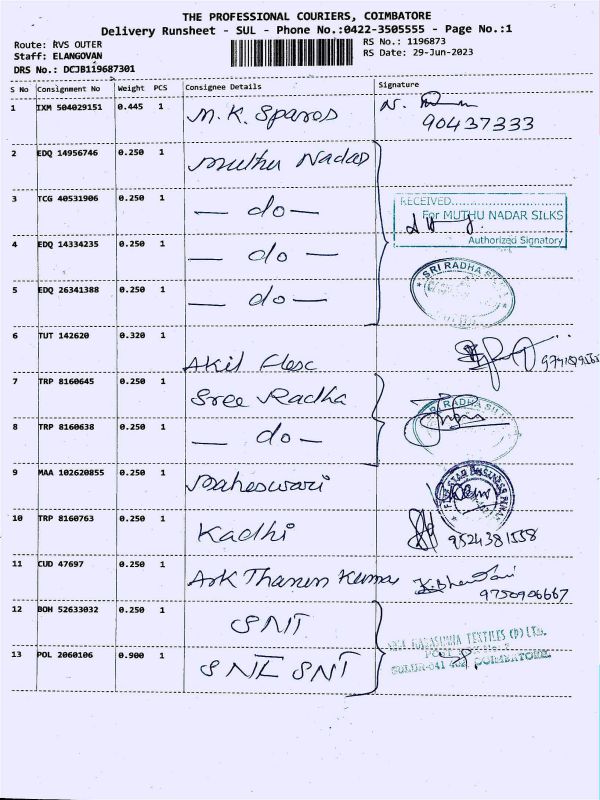 THE PROFESSIONAL COURIERS, COIMBATORE
Delivery Runsheet - SUL - Phone No.:0422-3505555 - Page No.:1
Route: RVS OUTER
Staff: ELANGOVAN
DRS No.: DCJB119687301
RS No.: 1196873
RS Date: 29-Jun-2023
S No Consignment No Weight PCS Consignee Details Signature
1 IXM 504029151 0.445 1 M.K. Spares
90437333
2 EDQ 14956746 0.250 1 Muthu Nadar
3 TCG 40531906 0.250 1 — do —
RECEIVED
For MUTHU NADAR SILKS
Authorized Signatory
4 EDQ 14334235 0.250 1 — do —
5 EDQ 26341388 0.250 1 — do —
SRI RADHA
6 TUT 142620 0.320 1 Akil
7 TRP 8160645 0.250 1 Sree Radha
RADHA
8 TRP 8160638 0.250 1 — do —
9 MAA 102620855 0.250 1 Maheswari
10 TRP 8160763 0.250 1 Kadhi
9524381558
11 CUD 47697 0.250 1 Ark Kumar
9750906667
12 BOH 52633032 0.250 1 SNT
TEXTILES (P) LTD.
13 POL 2060106 0.900 1 SNT
COIMBATORE